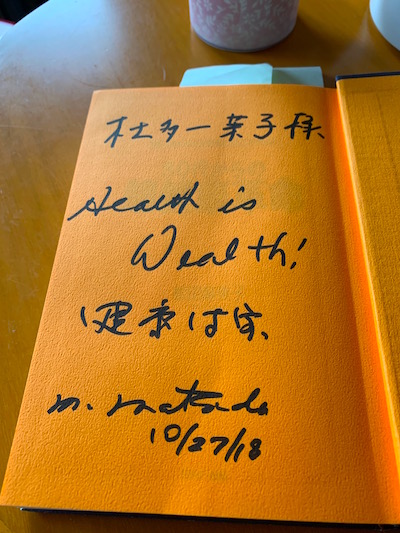 杜多一葉子様
Health is
Wealth!
健康は宝、
M. Matsuda
10/27/18